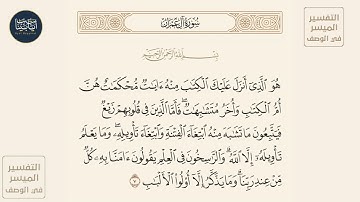 التفسير
الميسر
في الوصف
سُورَةُ آلِ عِمْرَانَ
بِسْمِ اللَّهِ الرَّحْمَٰنِ الرَّحِيمِ
هُوَ ٱلَّذِىٓ أَنزَلَ عَلَيْكَ ٱلْكِتَٰبَ مِنْهُ ءَايَٰتٌ مُّحْكَمَٰتٌ هُنَّ
أُمُّ ٱلْكِتَٰبِ وَأُخَرُ مُتَشَٰبِهَٰتٌ ۖ فَأَمَّا ٱلَّذِينَ فِى قُلُوبِهِمْ زَيْغٌ
فَيَتَّبِعُونَ مَا تَشَٰبَهَ مِنْهُ ٱبْتِغَآءَ ٱلْفِتْنَةِ وَٱبْتِغَآءَ تَأْوِيلِهِۦ ۗ وَمَا يَعْلَمُ
تَأْوِيلَهُۥٓ إِلَّا ٱللَّهُ ۗ وَٱلرَّٰسِخُونَ فِى ٱلْعِلْمِ يَقُولُونَ ءَامَنَّا بِهِۦ كُلٌّ
مِّنْ عِندِ رَبِّنَا ۗ وَمَا يَذَّكَّرُ إِلَّآ أُو۟لُوا۟ ٱلْأَلْبَٰبِ ٧
التفسير
الميسر
في الوصف